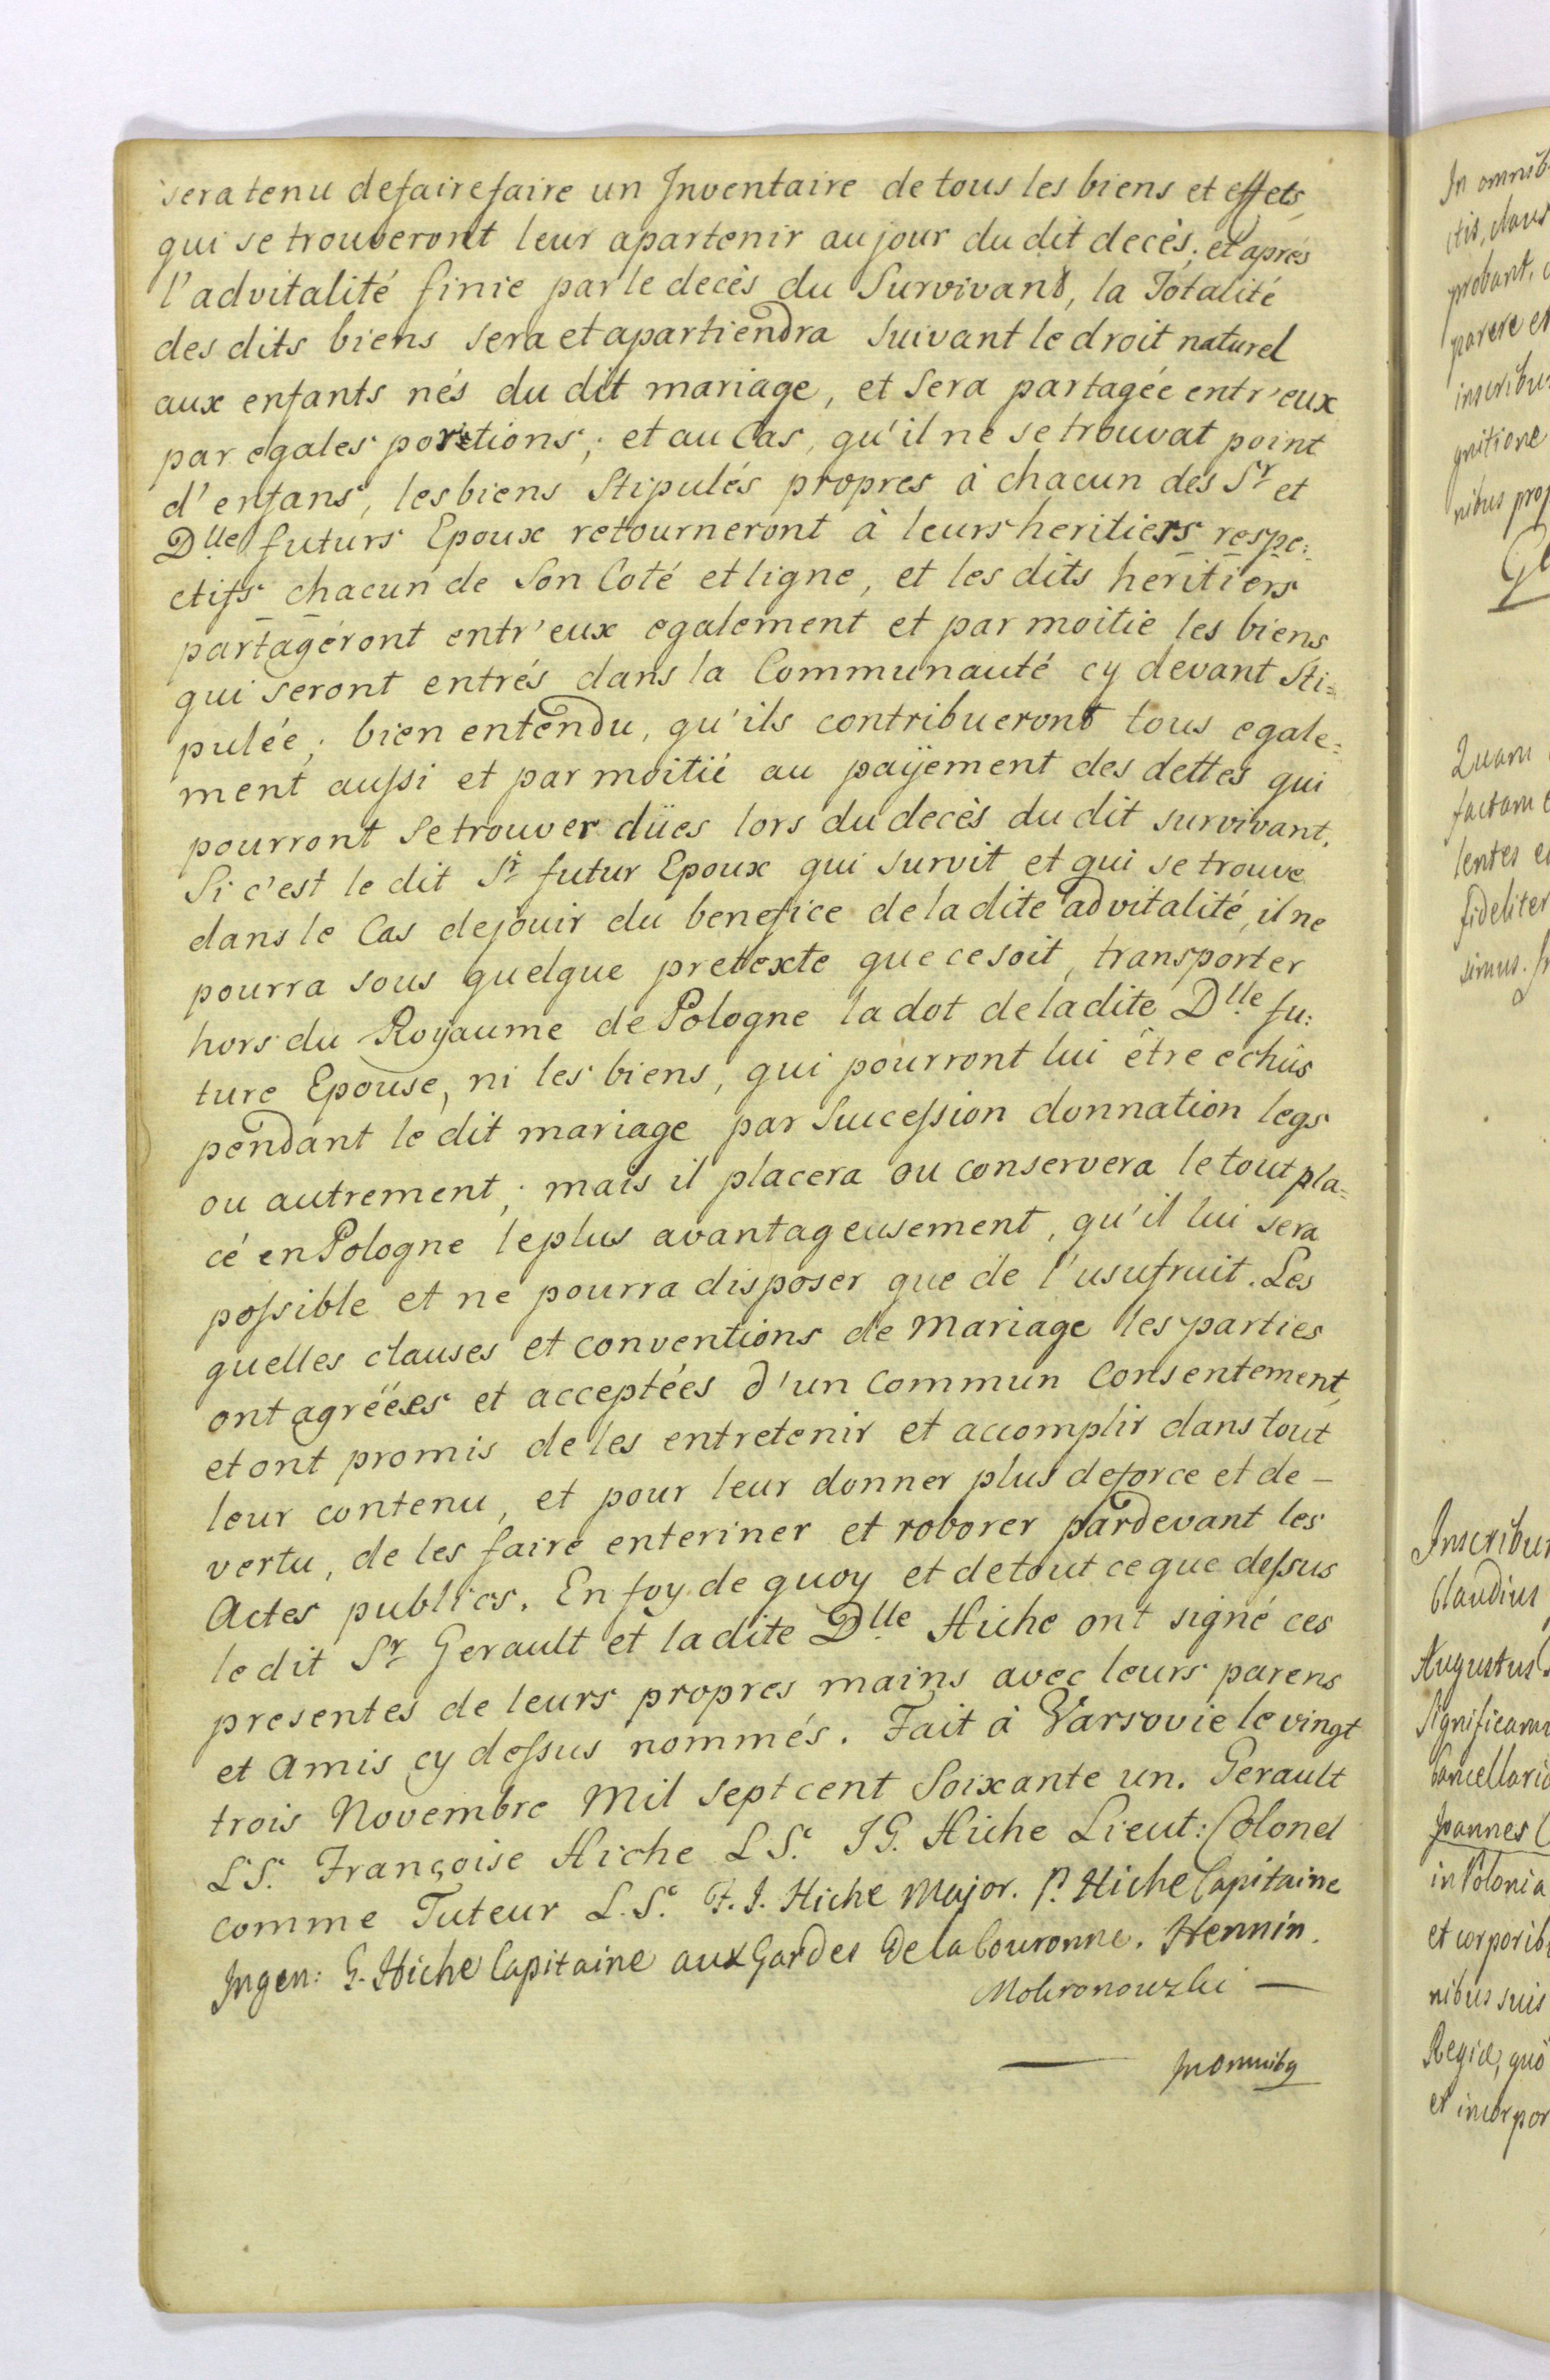 sera tenu de faire faire un Inventaire de tous les biens et effets,
qui se trouveront leur apartenir au jour du dit decès; et aprés
l'advitalité finie par le decès du Survivant, la Totalité
des dits biens sera et apartiendra suivant le droit naturel
aux enfants nés du dit mariage, et sera partagée entr'eux
par egales portions; et au Cas, qu'il ne se trouvat point
d'enfans, les biens Stipulés propres à chacun des Sr et
Dlle futurs Epoux retourneront à leurs heritiers respe:
ctifs chacun de Son Coté et ligne, et les dits heritiers
partageront entr'eux egalement et par moitie les biens
qui seront entrés dans la Communauté cy devant Sti=
pulée; bien entendu, qu'ils contribueront tous egale=
ment aussi et par moitié au payement des dettes qui
pourront se trouver dües lors du decès du dit survivant.
Si c'est le dit Sr futur Epoux qui survit et qui se trouve
dans le Cas de jouir du benefice de la dite advitalité, il ne
pourra sous quelque pretexte que ce soit, transporter
hors du Royaume de Pologne la dot de la dite Dlle fu:
ture Epouse, ni les biens, qui pourront lui être echûs
pendant le dit mariage par Succession donnation legs
ou autrement; mais il placera ou conservera le tout pla=
cé en Pologne le plus avantageusement, qu'il lui sera
possible et ne pourra disposer que de l'usufruit. Les
quelles clauses et conventions de Mariage les parties
ont agréées et acceptées d'un commun Consentement,
et ont promis de les entretenir et accomplir dans tout
leur contenu, et pour leur donner plus de force et de -
vertu, de les faire enteriner et roborer pardevant les
Actes publics. En foy de quoy et de tout ce que dessus
le dit Sr Gerault et la dite Dlle Hiche ont signé ces
presentes de leurs propres mains avec leurs parens
et Amis cy dessus nommés. Fait à Varsovie le vingt
trois Novembre Mil sept cent Soixante un. Gerault
LS. Françoise Hiche LS. J G. Hiche Lieut: Colonel
comme Tuteur L.S. F. J. Hiche Major. P. Hiche Capitaine
Ingen: G. Hiche Capitaine aux Gardes De la Couronne. Hennin.
Mokronowski —
— In omnibq
In omnib
probant,
parere et
inscribu
gnitione
nibus prop
Quam
factam
lentes
fideliter
simus.
Inscribu
Claudius
Augustus
Significam
Cancellaria
Joannes
in Polonia
et corporib
nibus suis
Regiæ, quo
et incorpor